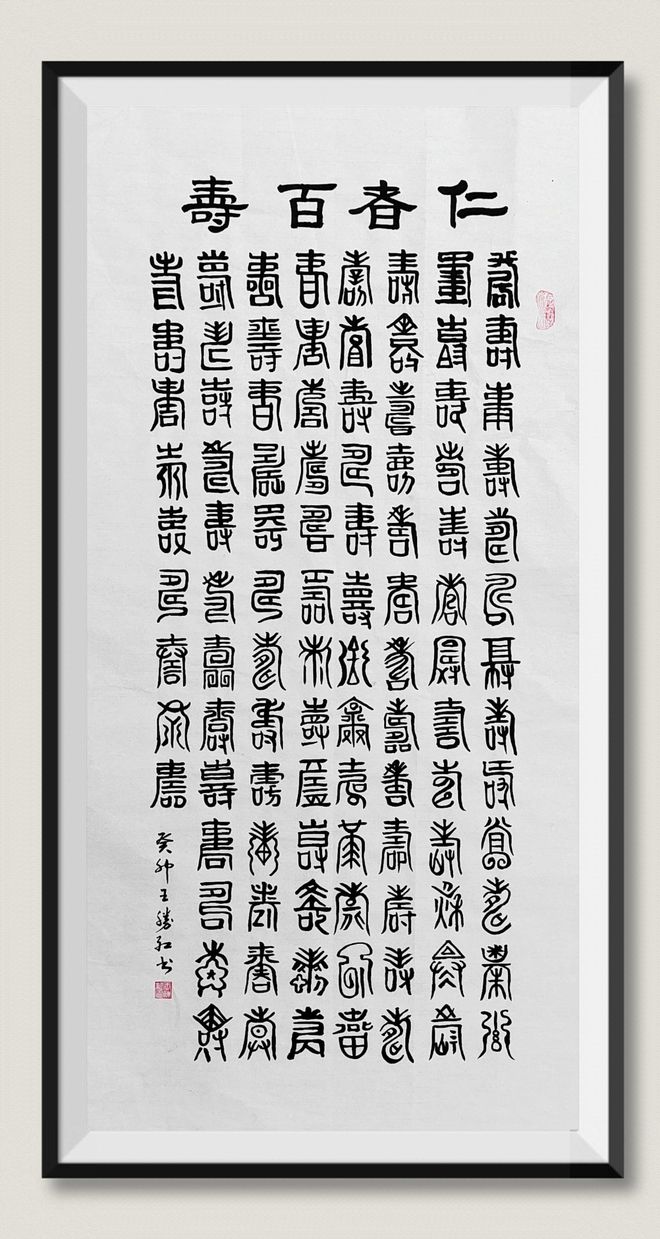 仁者百壽
壽壽壽壽壽壽壽壽壽壽壽壽壽
壽壽壽壽壽壽壽壽壽壽壽壽壽
壽壽壽壽壽壽壽壽壽壽壽壽壽
壽壽壽壽壽壽壽壽壽壽壽壽壽
壽壽壽壽壽壽壽壽壽壽壽壽壽
壽壽壽壽壽壽壽壽壽壽壽壽壽
壽壽壽壽壽壽壽壽壽壽壽壽壽
壽壽壽壽壽壽壽壽壽
癸卯王勝红书